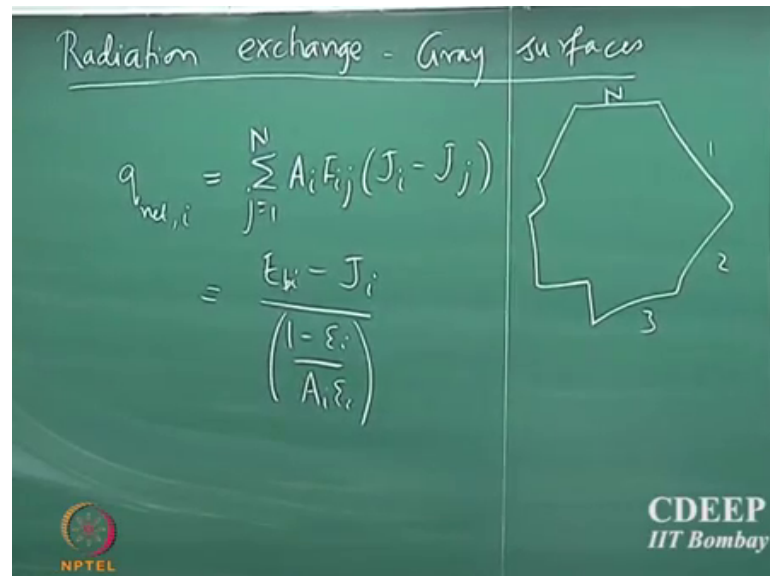 Radiation exchange - Gray surfaces
q_net,i = N Σ j=1 A_i F_ij (J_i - J_j)
= E_bi - J_i / ((1 - ε_i) / (A_i ε_i))
N
1
2
3
NPTEL
CDEEP
IIT Bombay